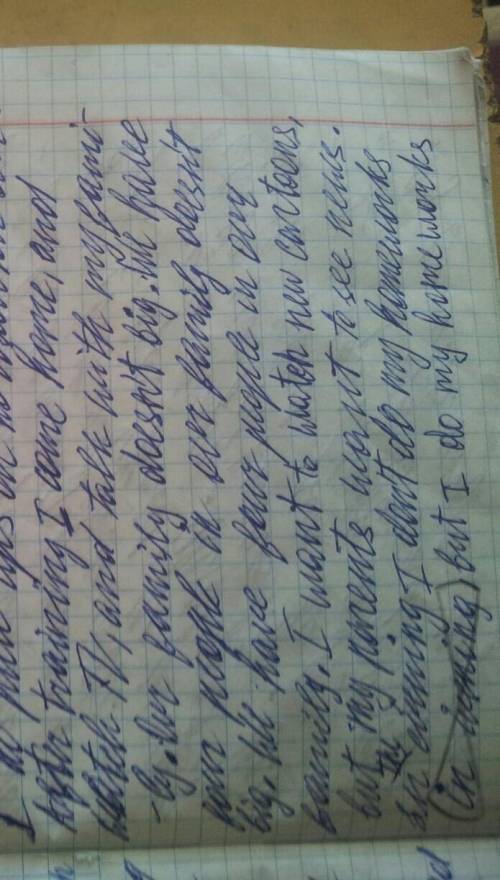 I do push ups on
After training I come home, and
watch TV, and talk with my fami-
ly. Our family doesnt big. We have
four people in our family doesnt
big. We have four people in our
family. I want to watch new cartoons,
but my parents want to see news.
In the evening I dont do my homeworks
(in evening) but I do my homeworks